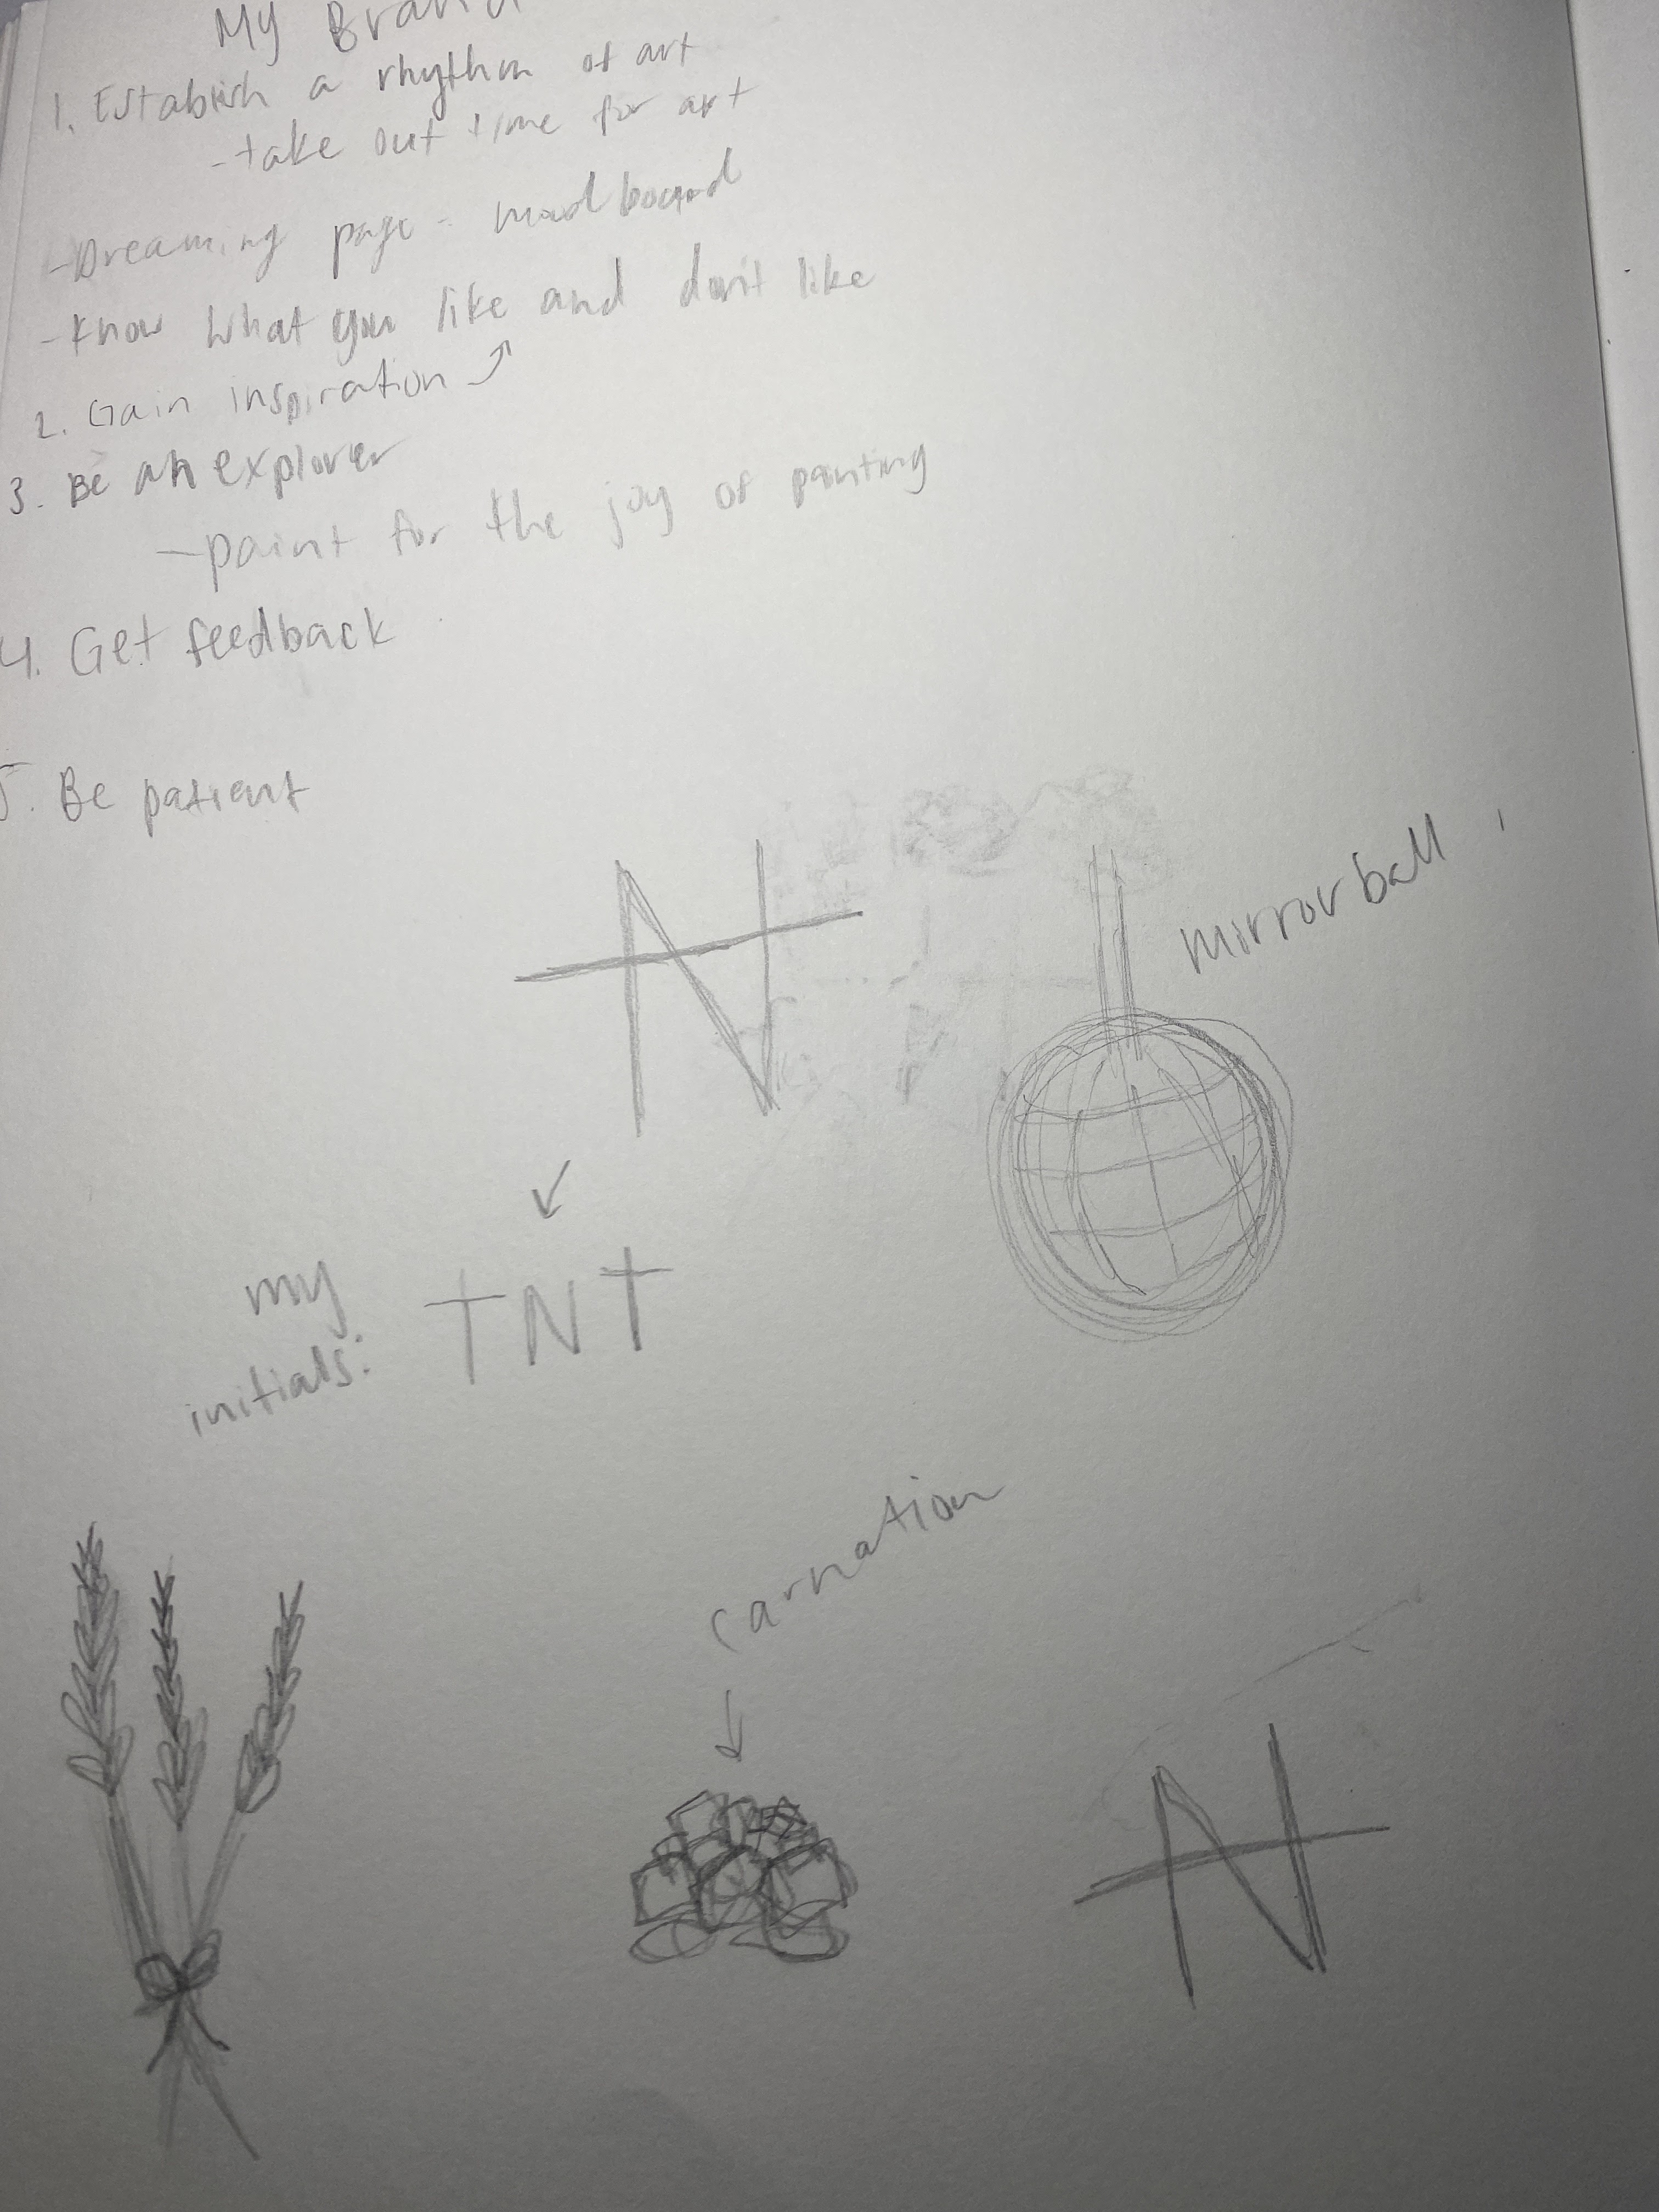 My Brand
1. Establish a rhythm of art
- take out time for art
- Dreaming page - mood board
- Know what you like and don't like
2. Gain inspiration
3. Be an explorer
- paint for the joy of painting
4. Get feedback
5. Be patient
N
mirror ball
my
initials: TNT
carnation
N